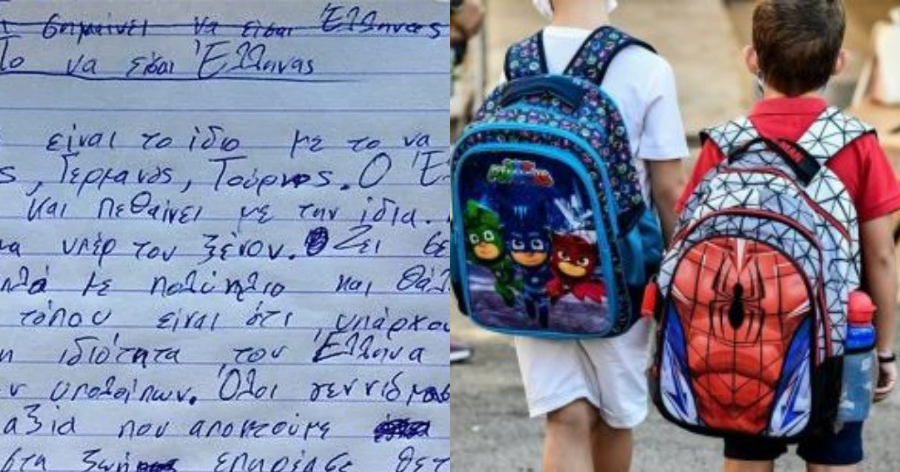 σημαίνει να είσαι Έλληνας
Το να είσαι Έλληνας
είναι το ίδιο με το να
ς, Γερμανός, Τούρκος. Ο Έ
και πεθαίνει με την ίδια.
υπέρ του ξένου. Ζει σε
με πολύ και
τόπου είναι ότι υπάρχου
η ιδιότητα του Έλληνα
ν υπολοίπων. Όλοι
αξία που αποκτούμε
στα ζωή επηρέασε θετ
PJ MASKS